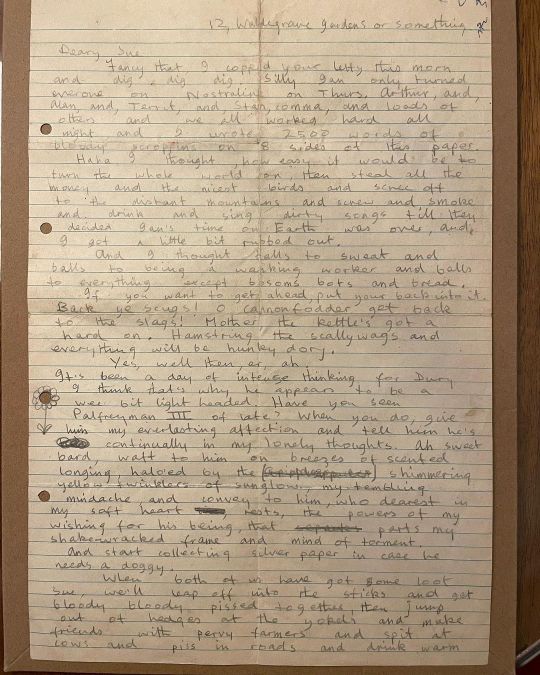 12, Waldegrave Gardens or something
Deary Sue
Fancy that I copped your letty this morn
and dig, dig dig. Silly Ian only turned
everone on Nostraline on Thurs, Arthur, and,
Alan, and, Territ, and Stan, comma, and loads of
others and we all worked hard all
night and I wrote 2500 words of
bloody scroppins on 8 sides of this paper.
Haha I thought, how easy it would be to
turn the whole world on, then steal all the
money and the nicest birds and screc off
to the distant mountains and screw and smoke
and drink and sing dirty songs till they
decided Ian's time on Earth was over, and
I got a little bit rubbed out.
And I thought balls to sweat and
balls to being a wanking worker and balls
to everything except bosoms bots and bread.
If you want to get ahead, put your back into it.
Back ye scugs! O cannonfodder get back
to the slags! Mother the kettle's got a
hard on. Hamstring the scallywags and
everything will be hunky dory.
Yes, well then, er, ah,
It's been a day of intense thinking for Dury
I think that's why he appears to be a
wee bit light headed. Have you seen
Palfreyman III of late? When you do, give
him my everlasting affection and tell him he's
continually in my lonely thoughts. Ah sweet
bard, waft to him on breezes of scented
longing haloed by the shimmering
yellow twinklers of sunglow, my trembling
mindache, and convey to him, who dearest in
my soft heart rests, the powers of my
wishing for his being, that parts my
shakewracked frame and mind of torment.
And start collecting silver paper in case he
needs a doggy.
When both of us have got some loot
Sue, we'll leap off into the sticks and get
bloody bloody pissed together, then jump
out of hedges at the yokels and make
friends with pervy farmers and spit at
cows and piss in roads and drink warm